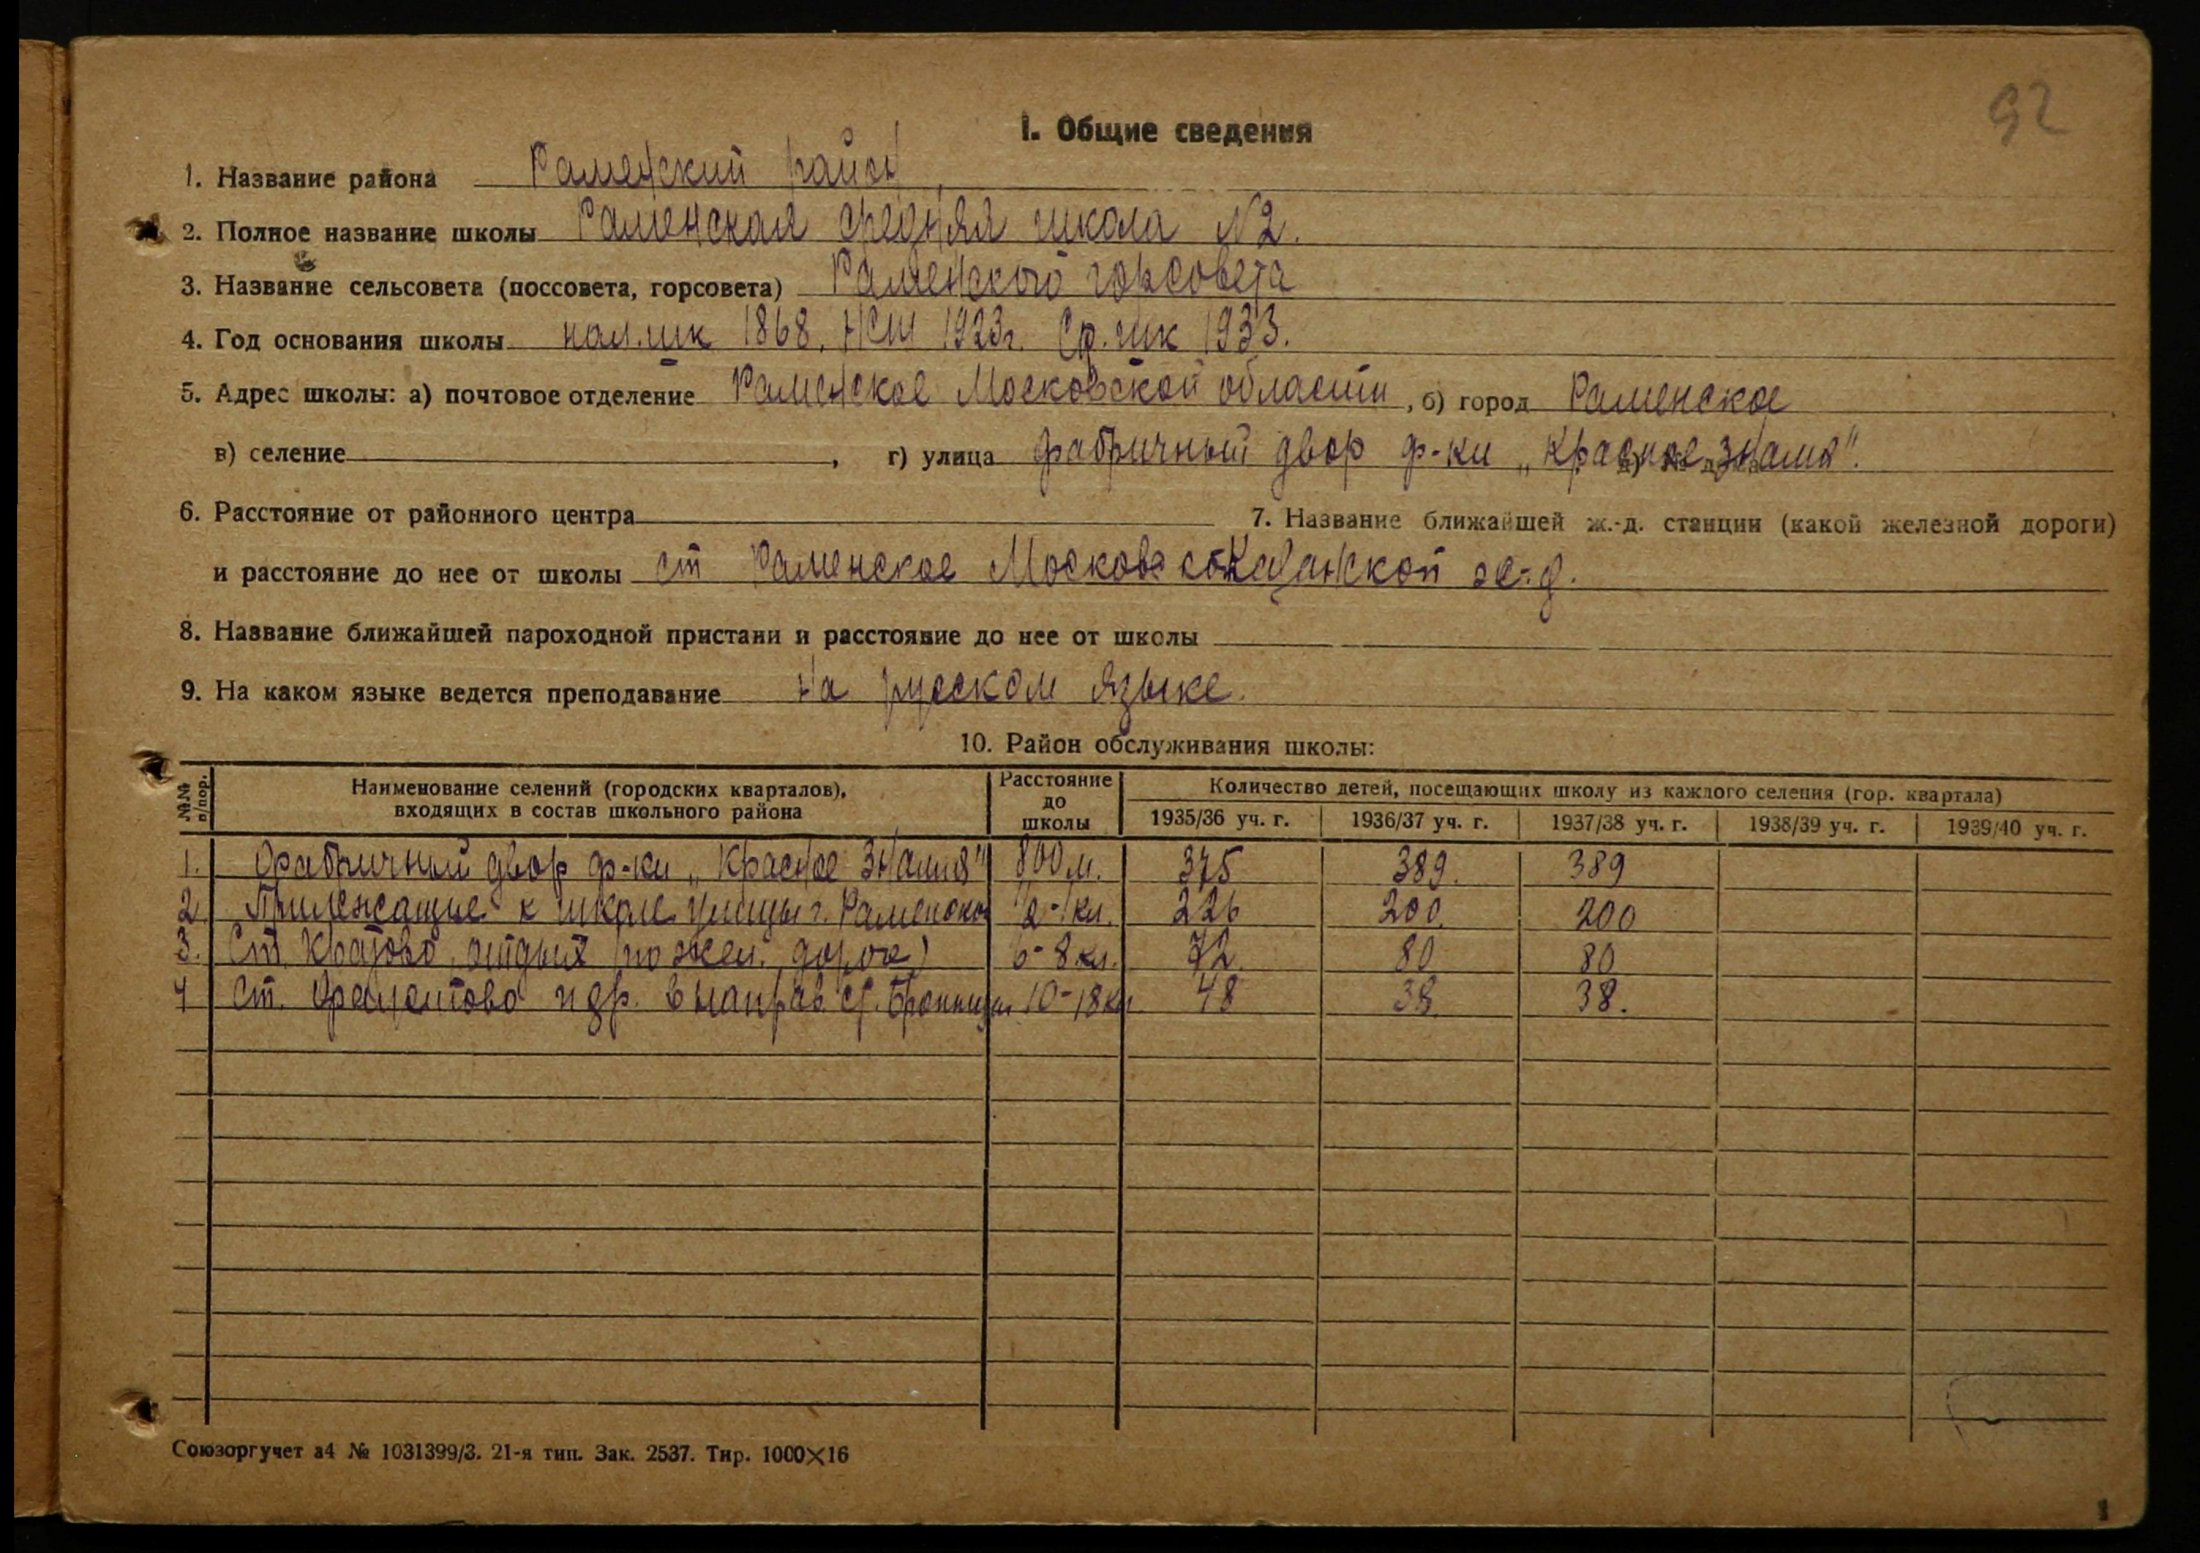 92
I. Общие сведения
1. Название района Раменский район
2. Полное название школы Раменская средняя школа №2.
3. Название сельсовета (поссовета, горсовета) Раменского горсовета
4. Год основания школы нач. шк 1868, НСШ 1923г. Ср. шк 1933.
5. Адрес школы: а) почтовое отделение Раменское Московской области, б) город Раменское
в) селение , г) улица фабричный двор ф-ки „Красное Знамя".
6. Расстояние от районного центра 7. Название ближайшей ж.-д. станции (какой железной дороги)
и расстояние до нее от школы ст Раменское Московско Казанской ж-д.
8. Название ближайшей пароходной пристани и расстояние до нее от школы
9. На каком языке ведется преподавание На русском языке.
10. Район обслуживания школы:
№№ п/пор. Наименование селений (городских кварталов), входящих в состав школьного района Расстояние до школы Количество детей, посещающих школу из каждого селения (гор. квартала)
1935/36 уч. г. 1936/37 уч. г. 1937/38 уч. г. 1938/39 уч. г. 1939/40 уч. г.
1. Фабричный двор ф-ки „Красное Знамя" 800 м. 375 389. 389
2. Прилежащие к школе улицы г. Раменское 1/2-1 км. 226 200. 200
3. Ст. Кратово, отдых (по жел. дороге) 6-8 км. 72 80 80
4 Ст. и др. в направ. ст. Бронницы 10-18 км 48 38 38.
Союзоргучет а4 № 1031399/3. 21-я тип. Зак. 2537. Тир. 1000×16